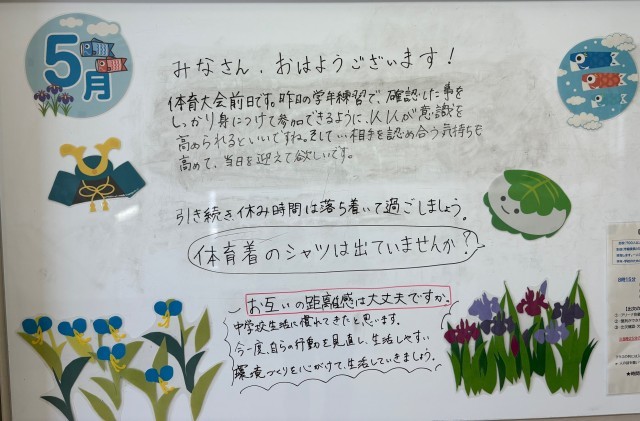 5月
みなさん、おはようございます！
体育大会前日です。昨日の学年練習で、確認した事を
しっかり身につけて参加できるように、人人が意識を
高められるといいですね。そして…相手を認め合う気持ちも
高めて、当日を迎えて欲しいです。
引き続き、休み時間は落ち着いて過ごしましょう。
体育着のシャツは出ていませんか？
お互いの距離感は大丈夫ですか。
中学校生活に慣れてきたと思います。
今一度、自らの行動を見直し、生活しやすい
環境づくりを心がけて、生活していきましょう。